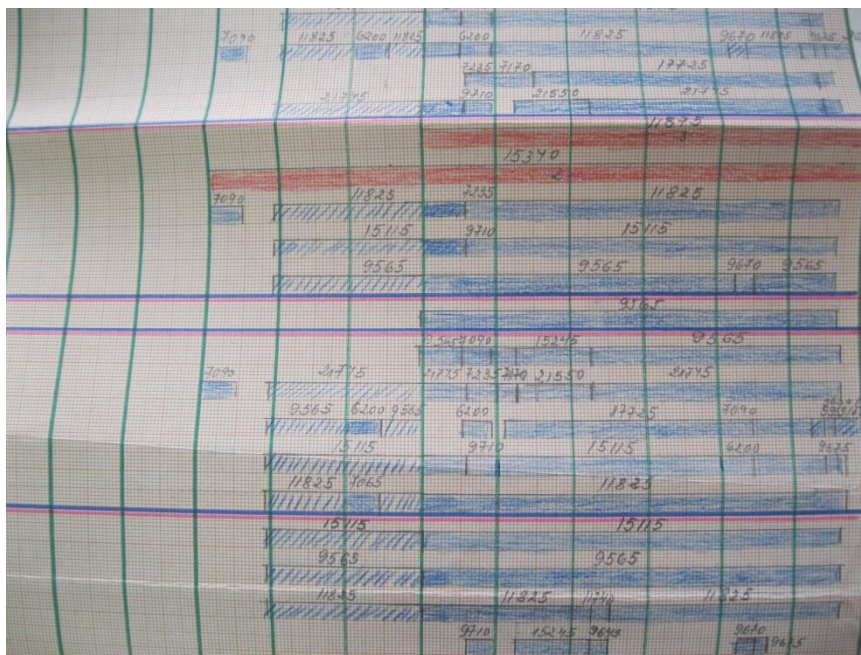 7090 11825 6200 11825 6200 11825 9670 11825 9625
7235 7170 17725
21775 9710 21550 21775
11875
3
15340
2
7090 11825 7235 11825
15115 9710 15115
9565 9565 9670 9565
9565
7090 15245 9565
7090 21775 21775 7235 7170 21550 21775
9565 6200 9565 6200 17725 7090
15115 9710 15115 6200 9625
11825 7065 11825
15115 15115
9565 9565
11825 11825 11825
9710 15245 9670